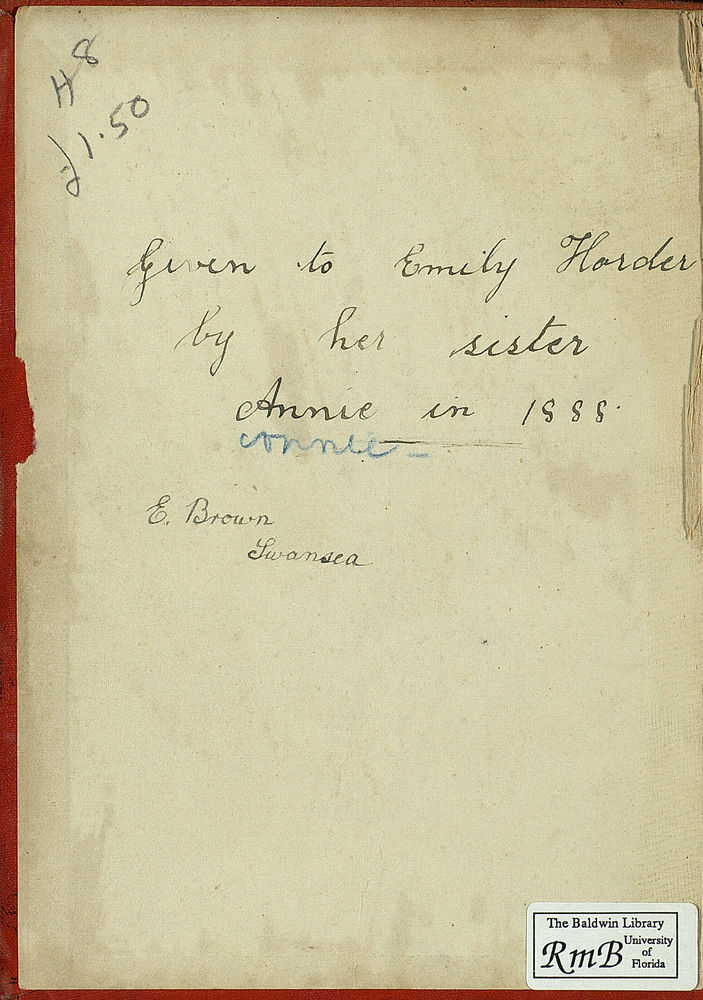 H8
£1.50
Given to Emily Horder
by her sister
Annie in 1888.
Connie
E. Brown
Swansea
The Baldwin Library
RmB University
of
Florida